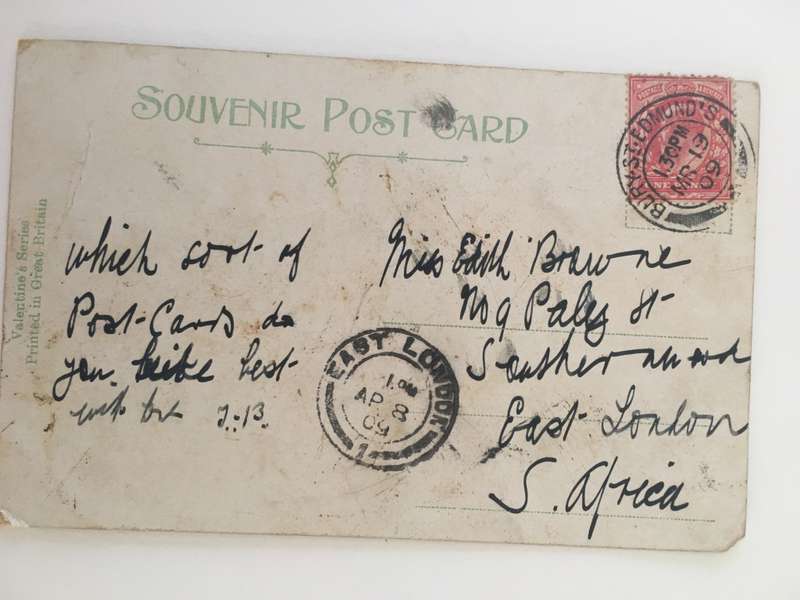 SOUVENIR POST CARD
Valentine's Series
Printed in Great Britain
BURY ST. EDMUND'S
1.30PM
MR 19
09
which sort of
Post-Cards do
you like best
with
J.B.
EAST LONDON
AP 8
09
Miss Edith Browne
No 9 Paley St
Southernwood
East London
S. Africa